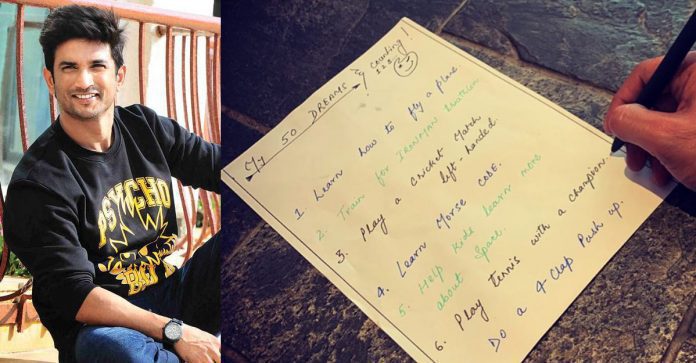 PSYCHO
My 50 DREAMS & counting!
1 2 3
1. Learn how to fly a plane
2. Train for IRONMAN triathlon
3. Play a cricket Match
left-handed
4. Learn Morse Code.
5. Help kids learn more
about Space.
6. Play Tennis with a champion
Do a 4 Clap Push up.